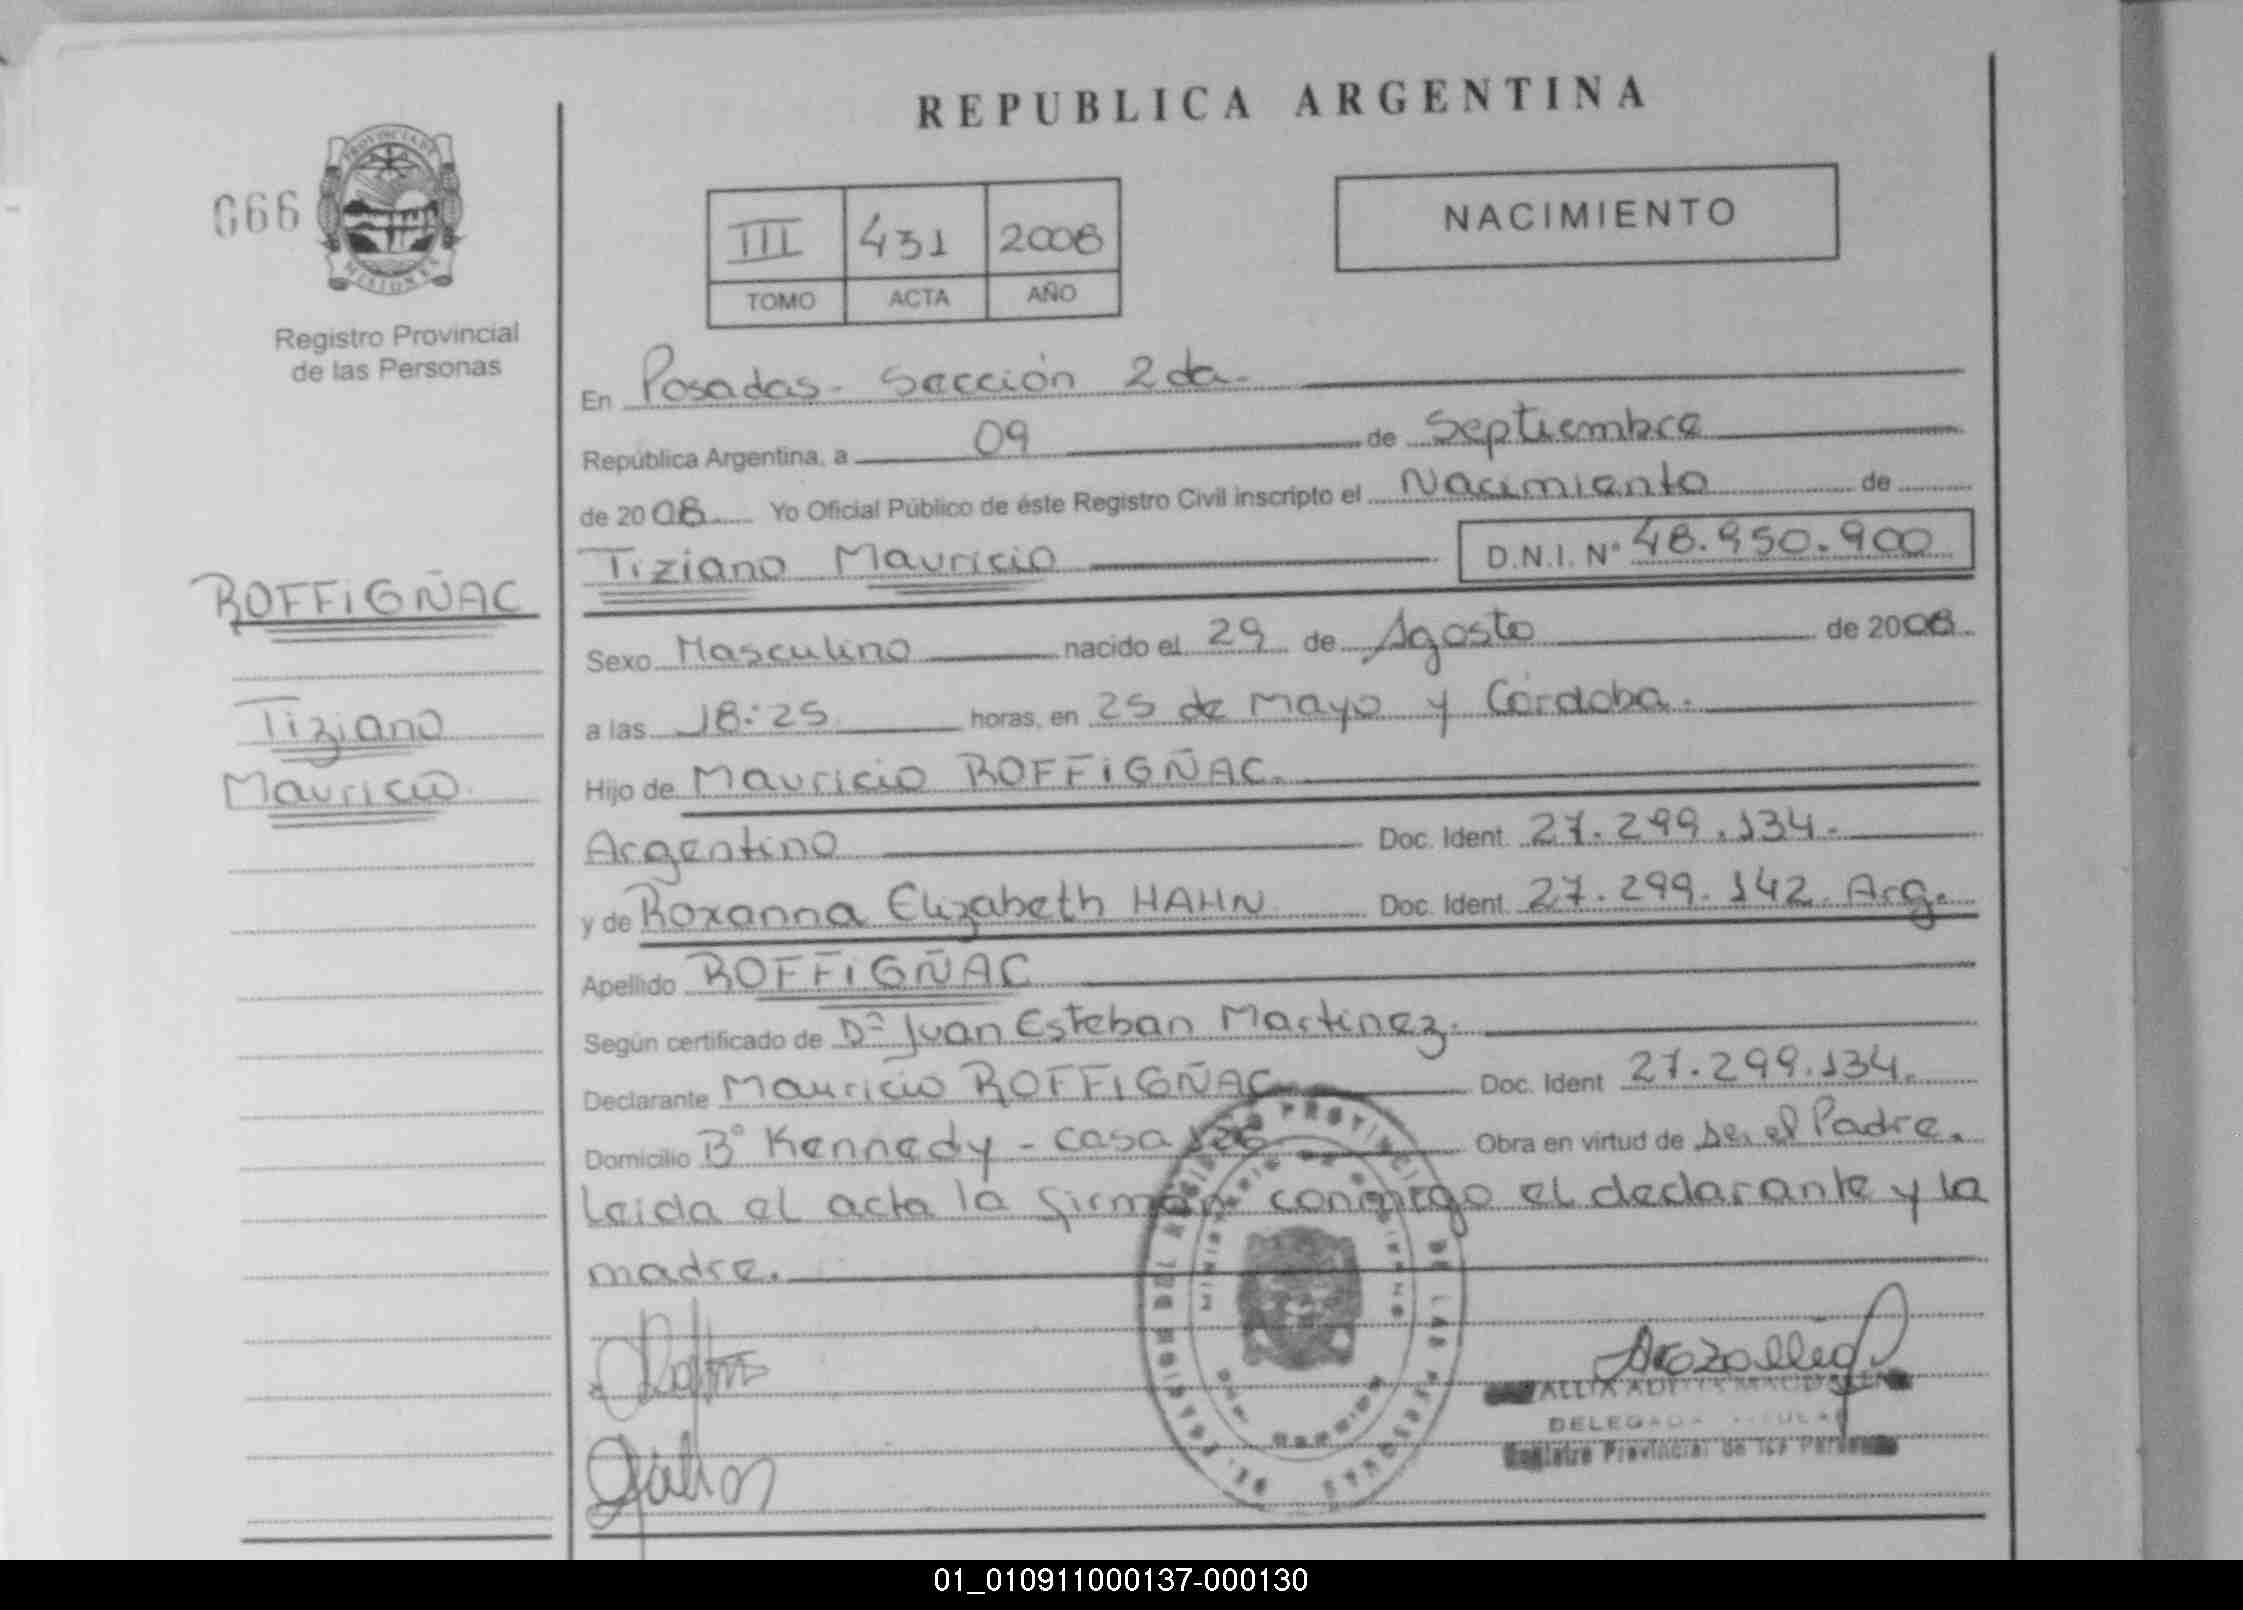 REPUBLICA ARGENTINA
066
PROVINCIA DE
MISIONES
Registro Provincial
de las Personas
III 431 2008
TOMO ACTA AÑO
NACIMIENTO
En Posadas - Sección 2da -
República Argentina, a 09 de Septiembre
de 2008 Yo Oficial Público de éste Registro Civil inscripto el Nacimiento de
Tiziano Mauricio D.N.I. Nº 48.950.900
ROFFiGÑAC
Tiziano
Mauricio
Sexo Masculino nacido el 29 de Agosto de 2008
a las 18:25 horas, en 25 de Mayo y Córdoba.
Hijo de Mauricio ROFFiGÑAC.
Argentino Doc. Ident. 27.299.134.
y de Roxanna Elizabeth HAHN Doc. Ident. 27.299.142. Arg.
Apellido ROFFiGÑAC
Según certificado de Dº Juan Esteban Martinez.
Declarante Mauricio ROFFiGÑAC Doc. Ident 27.299.134.
Domicilio Bº Kennedy - casa 126 Obra en virtud de ser el Padre.
Leida el acta la firman conmigo el declarante y la
madre.
REGISTRO PROVINCIAL DE LAS PERSONAS
DELEGADA TITULAR
Registro Provincial de las Personas
01_010911000137-000130